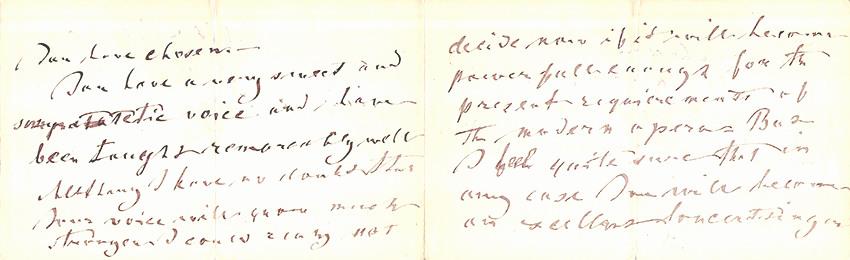 You have chosen.
You have a very sweet and
sympathetic voice and have
been taught remarkably well
Although I have no doubt that
Your voice will grow much
stronger I could really not
decide now if it will become
powerful enough for the
present requirements of
the modern operas But
I feel quite sure that in
any case You will become
an excellent Concert singer